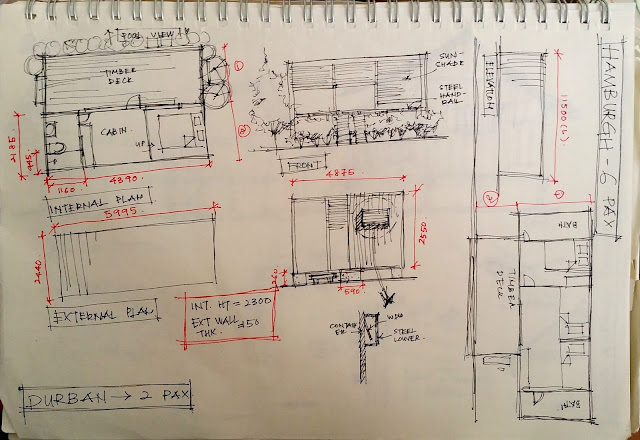 POOL VIEW
TIMBER
DECK
CABIN
UP
2185
945
1160
4390
INTERNAL PLAN
①
②
SUN-
SHADE
STEEL
HAND-
RAIL
FRONT
5995
2440
EXTERNAL PLAN
4875
2550
260
590
INT. HT = 2300
EXT WALL
THK. 50
CONTAIN
ER
WDW
STEEL
LOUVER.
DURBAN → 2 PAX
HAMBURGH - 6 PAX
ELEVATION
11500 (L)
②
①
BATH
TIMBER
DECK
BATH